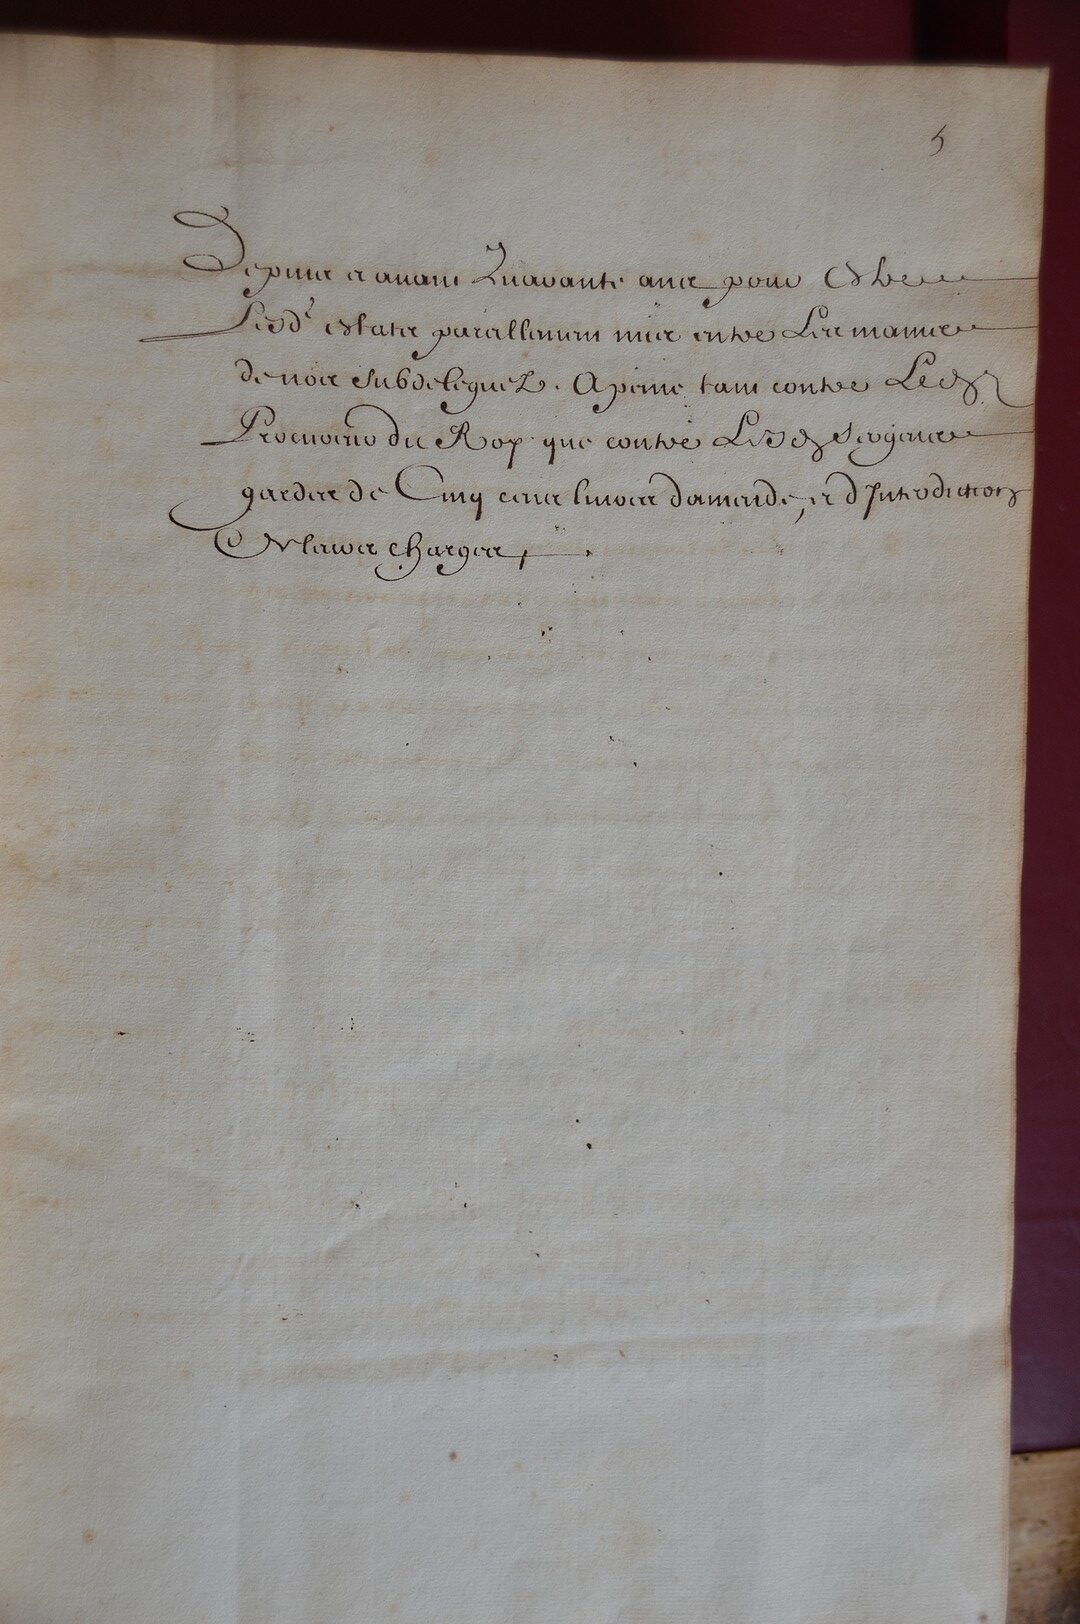 5
Depuis et auant Quarante ans pour Estre
Lesd.ts estats parallement mis entre Les mains
de nos Subdeleguez. A peine tant contre Lesd.
Procureurs du Roy que contre Lesd. Sergens
gardes de Cinq cens liures damende, et d'Interdiction
de leurs charges,